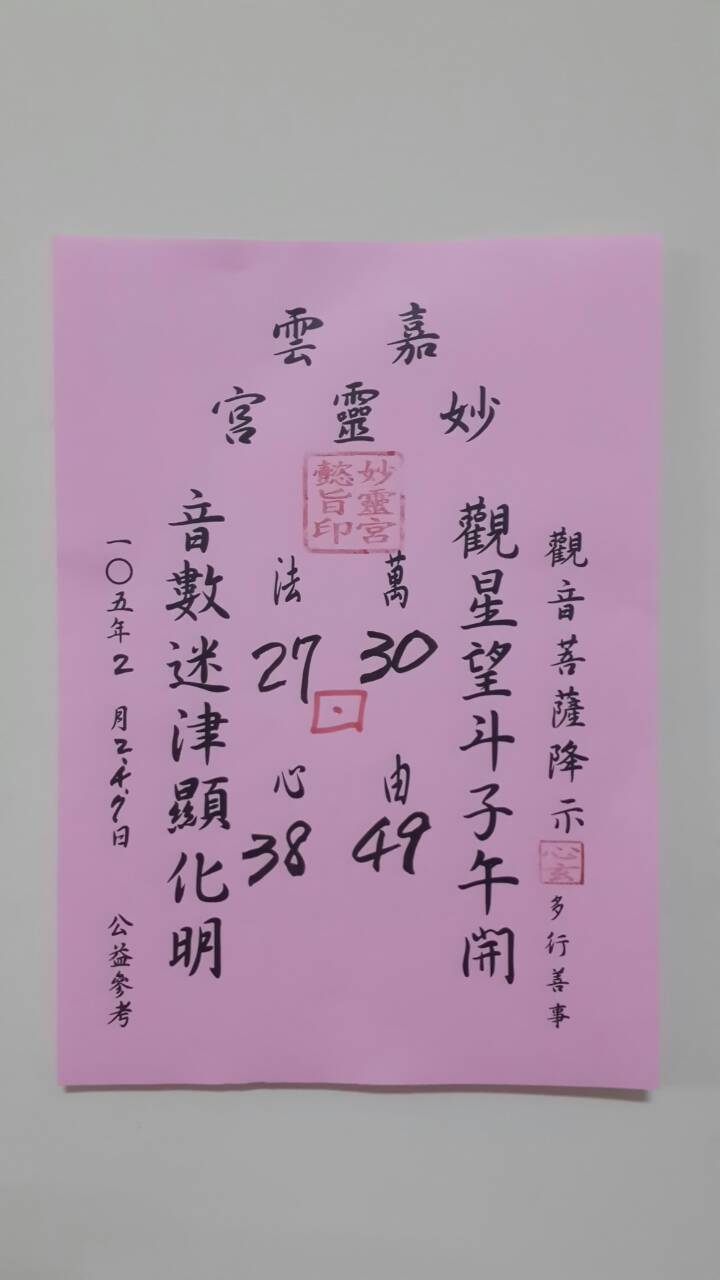 嘉雲
妙靈宮
妙靈宮懿旨印
觀音菩薩降示
心玄
多行善事
觀星望斗子午開
萬30由49
法27心38
音數迷津顯化明
一〇五年2月2.4.9日
公益參考